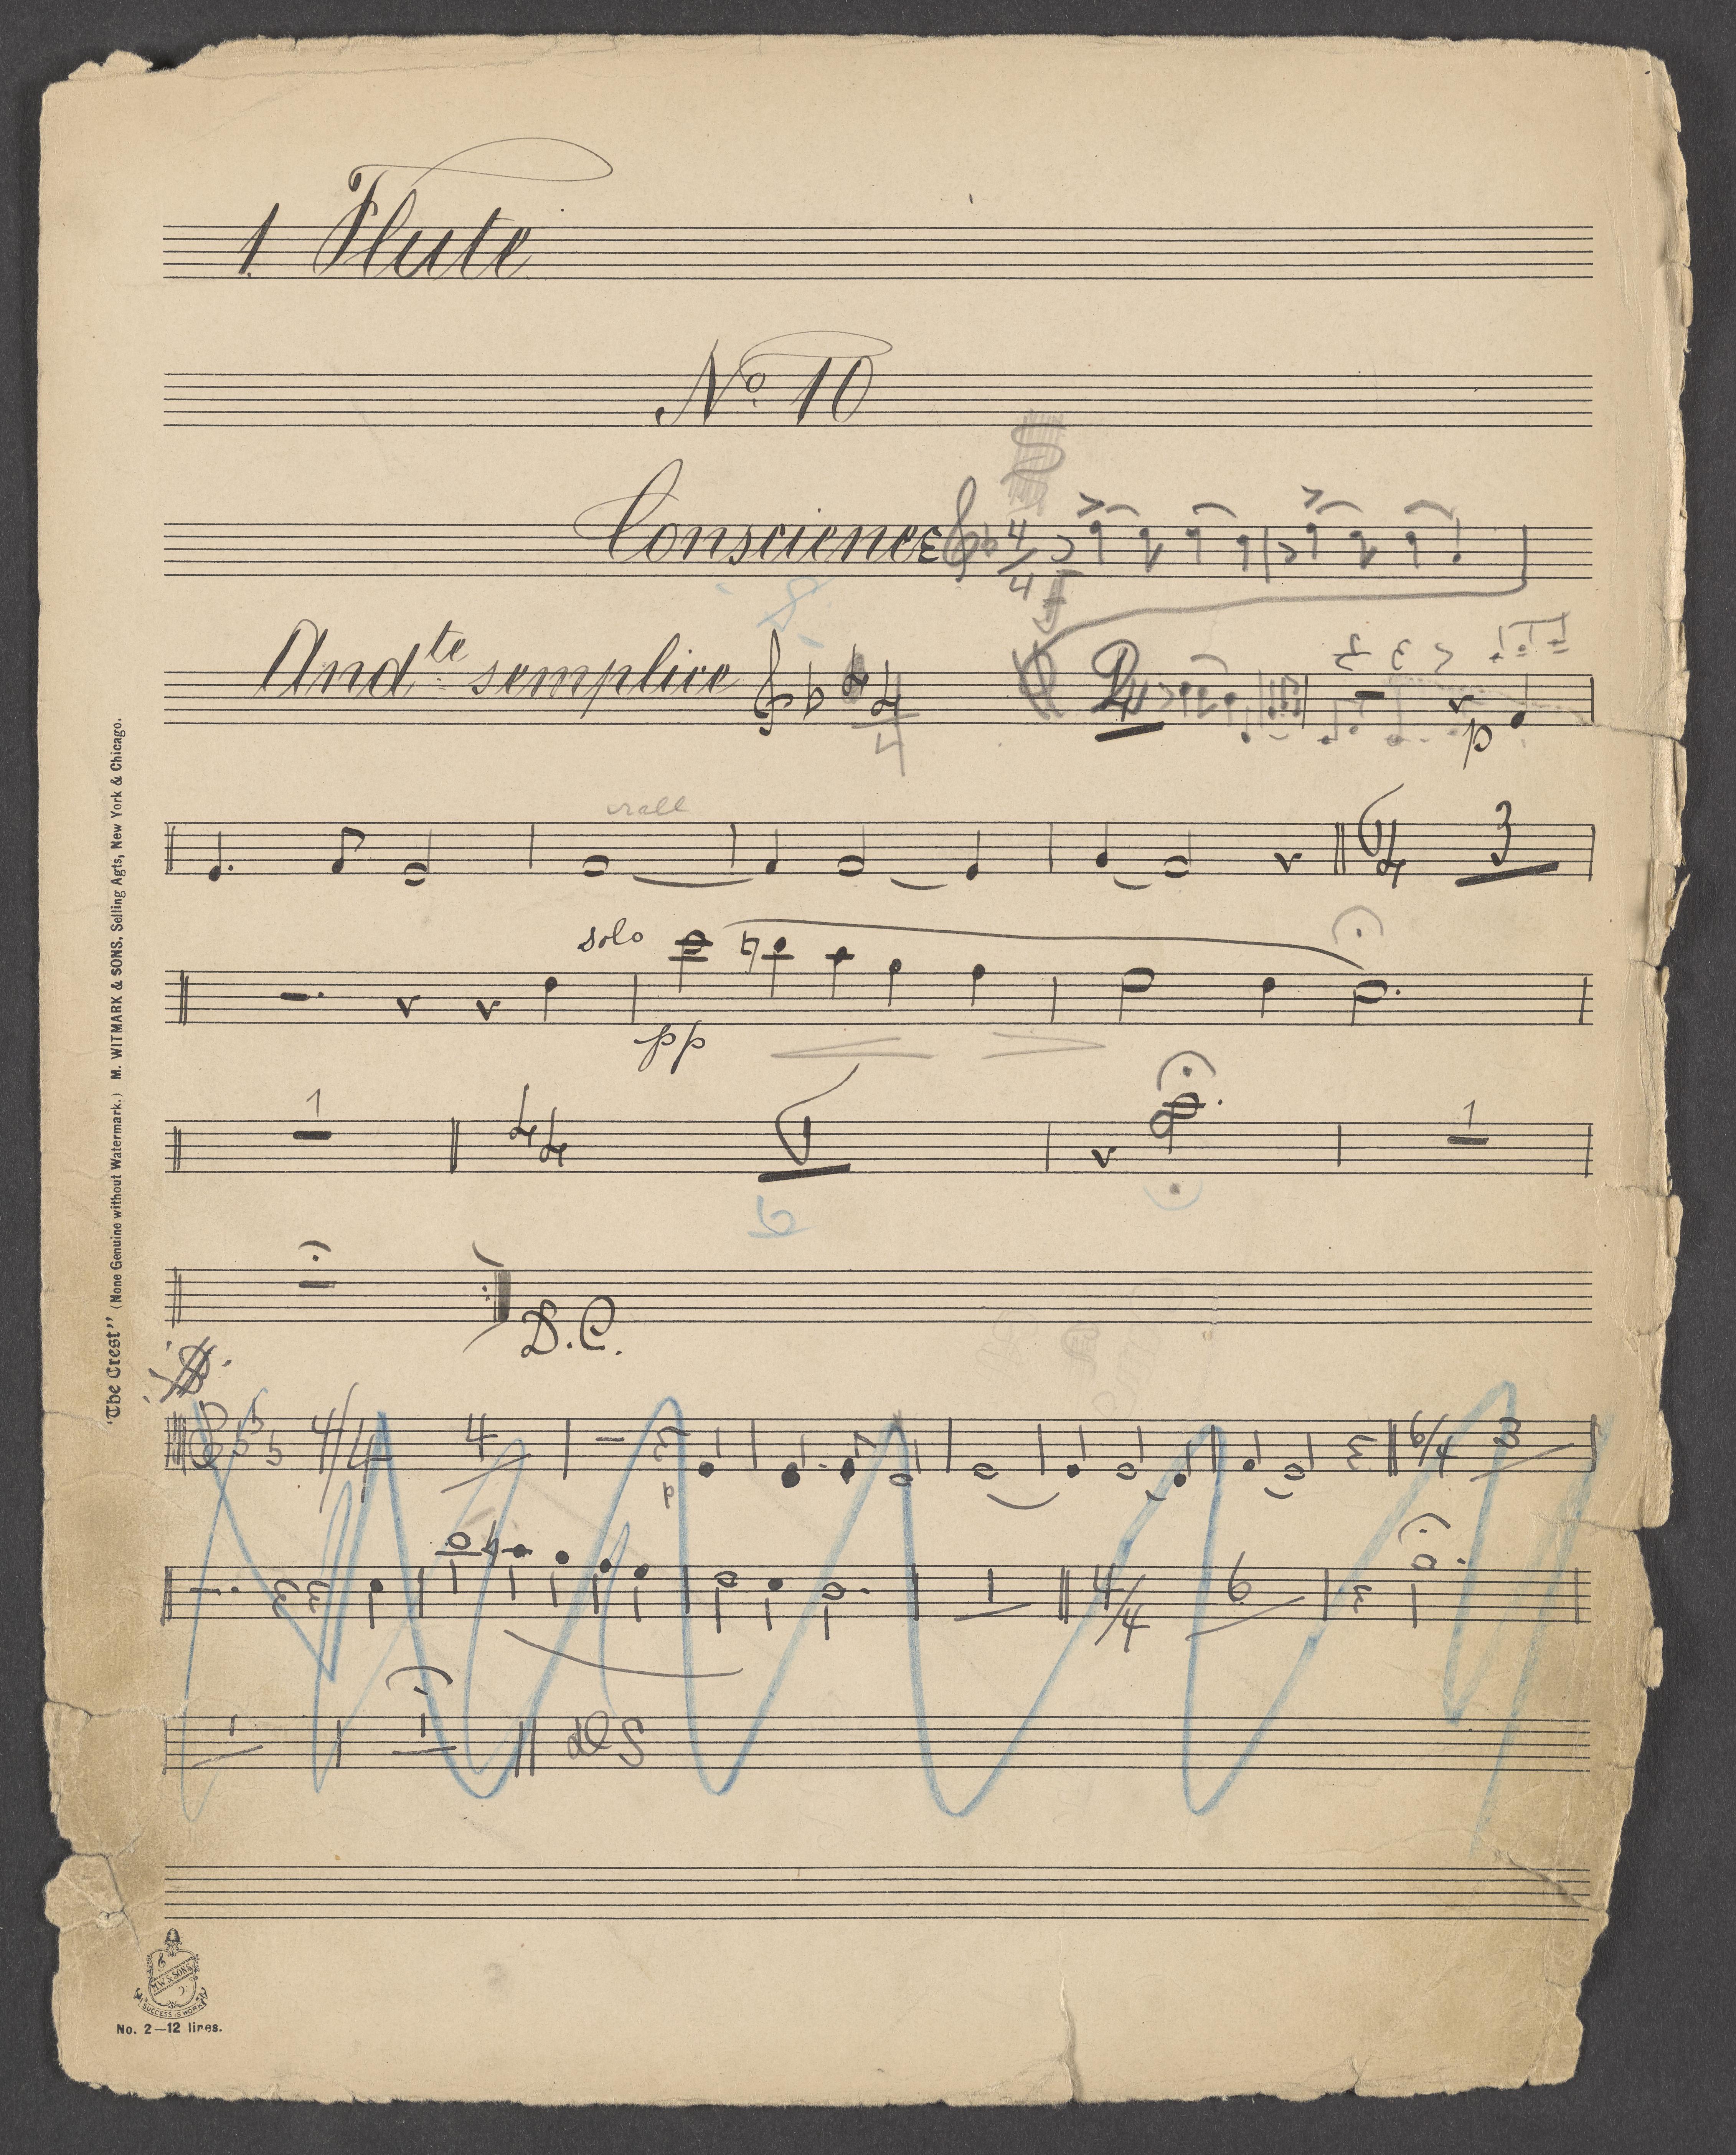 1 Flute
No. 10
Conscience
4
4
f
And.te semplice
4
4
p
rall
6
4
3
solo
pp
1
4
4
6
1
D.C.
4/4
4
p
6/4
3
1
4/4
6
1
1
dl S
"The Crest" (None Genuine without Watermark.) M. WITMARK & SONS, Selling Agts, New York & Chicago.
M.W. & SONS
SUCCESS IS WORK
No. 2—12 lines.